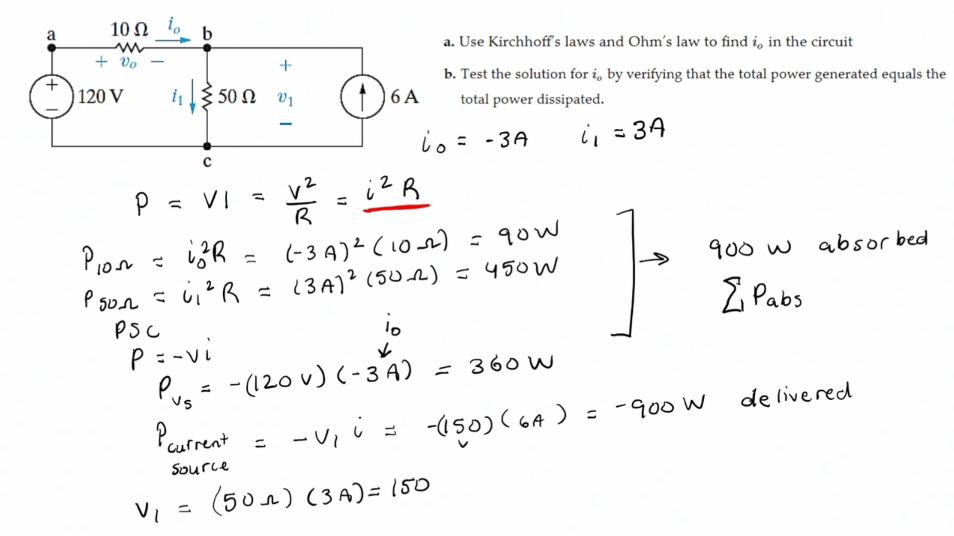 a. Use Kirchhoff's laws and Ohm's law to find iₒ in the circuit
b. Test the solution for iₒ by verifying that the total power generated equals the
total power dissipated.
10 Ω iₒ
a b
+ vₒ −
+
120 V i₁ 50 Ω v₁ 6 A
−
c
iₒ = -3A i₁ = 3A
P = VI = V²/R = i²R
P10Ω = iₒ²R = (-3A)²(10Ω) = 90W
P50Ω = i₁²R = (3A)²(50Ω) = 450W
900 W absorbed
∑ Pabs
PSC
P = -vi
iₒ
Pvs = -(120V)(-3A) = 360W
Pcurrent source = -V₁ i = -(150)(6A) = -900W delivered
V
V₁ = (50Ω)(3A) = 150